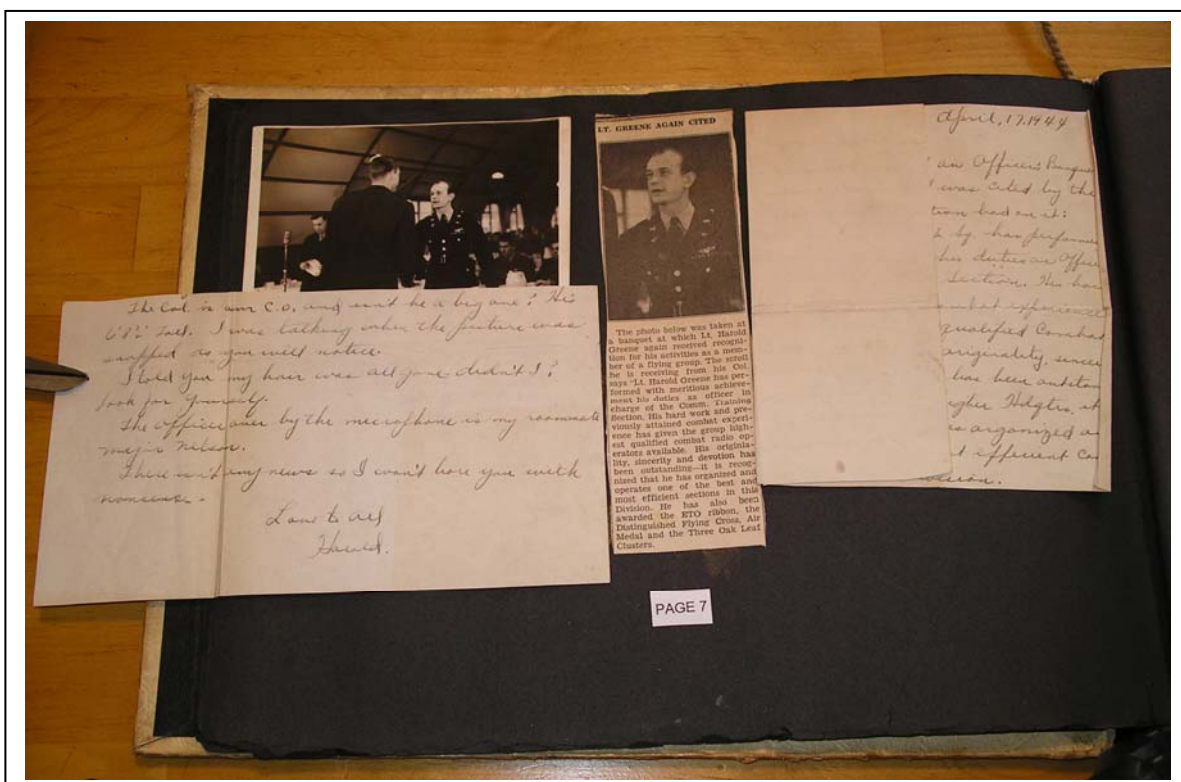 The Col. is our C.O. and isn't he a big one? His
tall. I was talking when the picture was
snapped as you will notice.
I told you my hair was all gone didn't I?
Look for yourself.
The officer over by the microphone is my roommate
major Nilson.
There isn't any news so I won't bore you with
nonsense.
Love to all
Harold.
LT. GREENE AGAIN CITED
The photo below was taken at
a banquet at which Lt. Harold
Greene again received recogni-
tion for his activities as a mem-
ber of a flying group. The scroll
he is receiving from his Col.
says "Lt. Harold Greene has per-
formed with meritious achieve-
ment his duties as officer in
charge of the Comm. Training
Section. His hard work and pre-
viously attained combat experi-
ence has given the group high-
est qualified combat radio op-
erators available. His originia-
lity, sincerity and devotion has
been outstanding—it is recog-
nized that he has organized and
operates one of the best and
most efficient sections in this
Division. He has also been
awarded the ETO ribbon, the
Distinguished Flying Cross, Air
Medal and the Three Oak Leaf
Clusters.
April, 17, 1944
an Officer's Banque
was cited by the
tion had on it:
has performe
his duties as Office
Section. His har
ombat experience
qualified Combat
originality, sincer
has been outstan
igher Hdqtrs, it
organized a
t efficient Co
PAGE 7